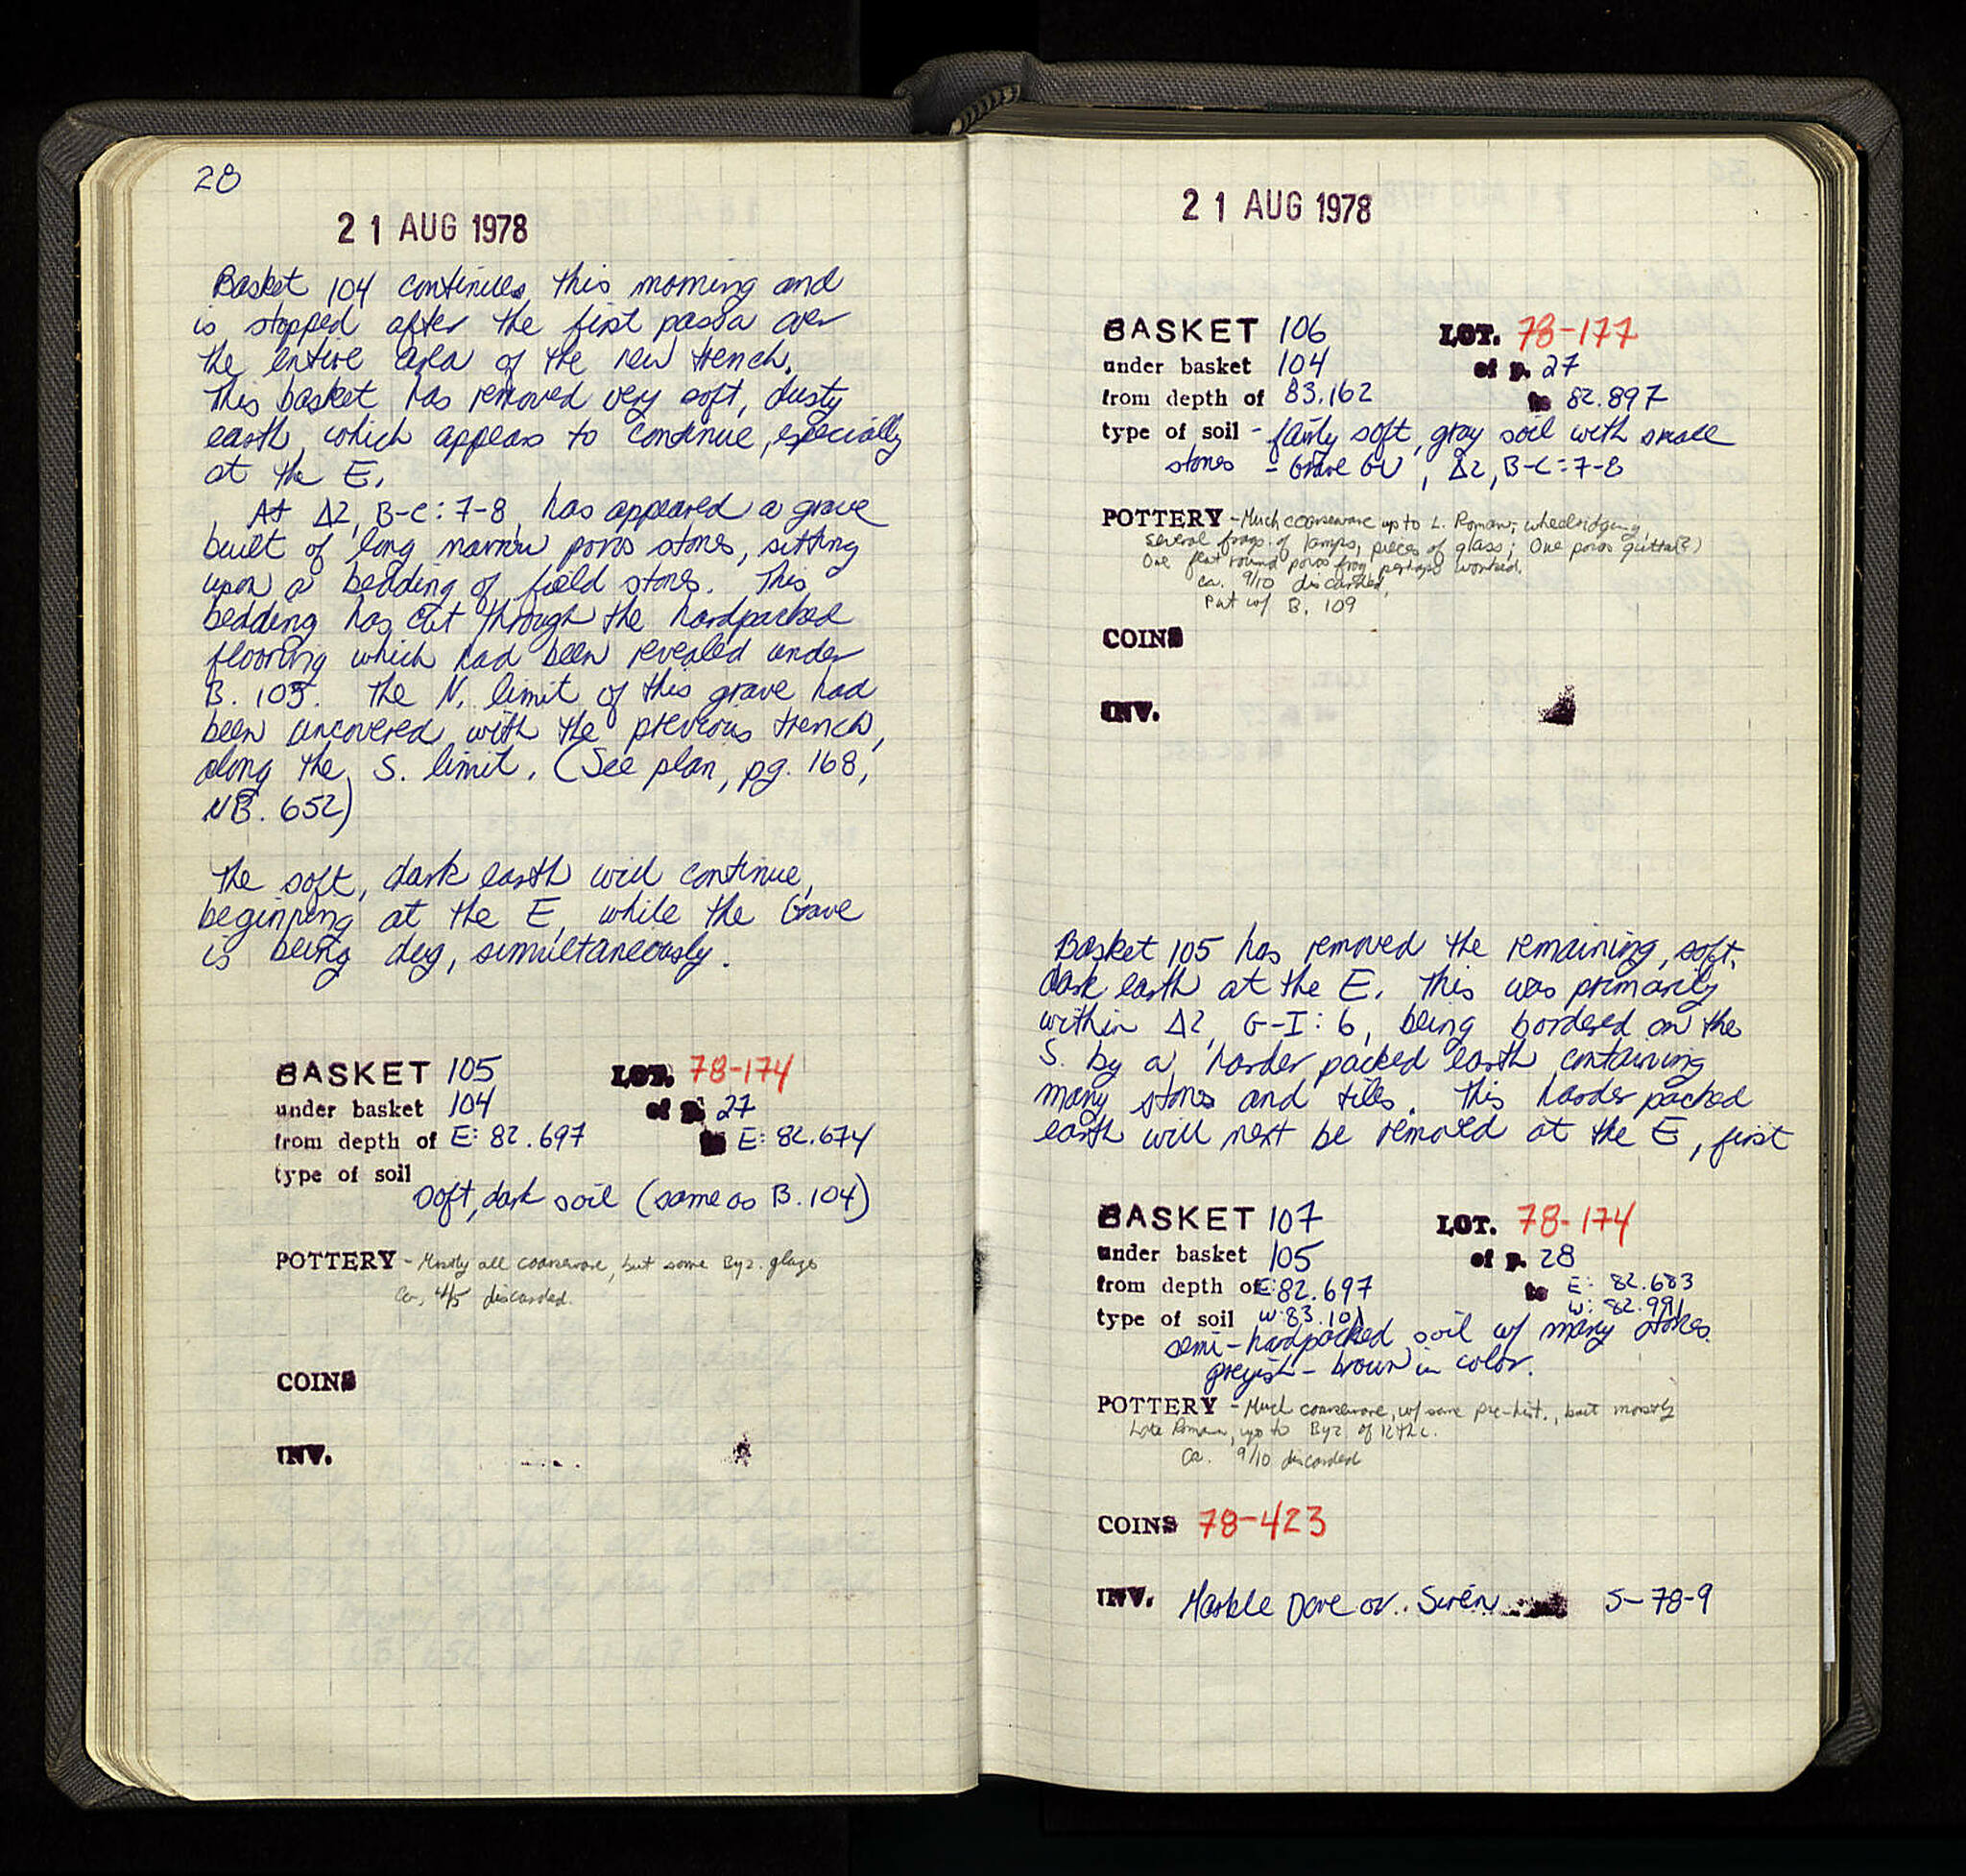 28
21 AUG 1978
Basket 104 continues this morning and
is stopped after the first passa over
the entire area of the new trench.
This basket has removed very soft, dusty
earth, which appears to continue, especially
at the E.
At Δ2, B-C:7-8, has appeared a grave
built of long narrow poros stones, sitting
upon a bedding of field stones. This
bedding has cut through the hardpacked
flooring which had been revealed under
B. 103. The N. limit of this grave had
been uncovered with the previous trench,
along the S. limit. (See plan, pg. 168,
NB. 652)
The soft, dark earth will continue,
beginning at the E, while the Grave
is being dug, simultaneously.
BASKET 105 LOT. 78-174
under basket 104 of p. 27
from depth of E: 82.697 to E: 82.674
type of soil
soft, dark soil (same as B. 104)
POTTERY - Mostly all coarseware, but some Byz. glaze
Ca. 4/5 discarded.
COINS
INV.
21 AUG 1978
BASKET 106 LOT. 78-177
under basket 104 of p. 27
from depth of 83.162 to 82.897
type of soil - fairly soft, gray soil with small
stones - Grave GU, Δ2, B-C:7-8
POTTERY - Much coarseware up to L. Roman; wheelridging,
several frags. of lamps, pieces of glass; One poros gutta(?)
One flat round poros frag. perhaps worked.
ca. 9/10 discarded,
Put w/ B. 109
COINS
INV.
Basket 105 has removed the remaining, soft,
dark earth at the E. This was primarily
within Δ2, G-I:6, being bordered on the
S. by a harder packed earth containing
many stones and tiles. This harder packed
earth will next be removed at the E, first
BASKET 107 LOT. 78-174
under basket 105 of p. 28
from depth of E: 82.697 to E: 82.683
type of soil W: 83.101 W: 82.991
semi-hardpacked soil w/ many stones
greyish-brown in color.
POTTERY - Much coarseware, w/ some pre-hist., but mostly
Late Roman, up to Byz of 12th c.
Ca. 9/10 discarded
COINS 78-423
INV. Marble Dove or Siren S-78-9